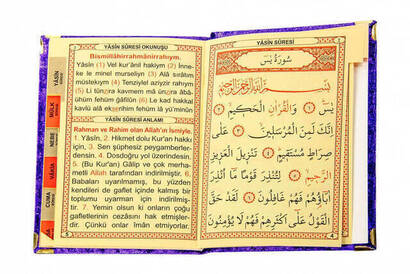 YÂSİN SÛRESİ OKUNUŞU
Bismillâhirrahmânirrahıym.
Yâsîn (1) Vel kur'ânil hakiym (2) İnne-
ke le minel murseliyn (3) Alâ sırâtım
müstekıym (4) Tenziylel aziyzir rahıym
(5) Li tünzira kavmem mâ ünzira âbâ-
ühüm fehüm ğâfilûn (6) Le kad hakkal
kavlü alâ ekserihim fehüm lâ yü'minûn
YÂSİN SÛRESİ ANLAMI
Rahman ve Rahim olan Allah'ın İsmiyle.
1. Yâsîn, 2. Hikmet dolu Kur'an hakkı
için, 3. Sen şüphesiz peygamberler-
densin. 4. Dosdoğru yol üzerindesin.
5. (Bu Kur'an) Gâlip ve çok merha-
metli Allah tarafından indirilmiştir. 6.
Babaları uyarılmamış, bu yüzden
kendileri de gaflet içinde kalmış bir
toplumu uyarman için indirilmiş-
tir. 7. Yemin olsun ki onların çoğu
gafletlerinin cezasını hak etmişler-
dir. Çünkü onlar iman etmiyorlar.
YÂSİN
MÜLK
NEBE
VÂKIA
CUMA
4
YÂSİN SÛRESİ
سُورَةُ يٰسٓ
بِسْمِ اللّٰهِ الرَّحْمٰنِ الرَّحِيمِ
يٰسٓ ﴿١﴾ وَالْقُرْاٰنِ الْحَكِيمِ ﴿٢﴾
اِنَّكَ لَمِنَ الْمُرْسَلِينَ ﴿٣﴾ عَلٰى
صِرَاطٍ مُسْتَقِيمٍ ﴿٤﴾ تَنْزِيلَ الْعَزِيزِ
الرَّحِيمِ ﴿٥﴾ لِتُنْذِرَ قَوْمًا مَٓا اُنْذِرَ
اٰبَٓاؤُ۬هُمْ فَهُمْ غَافِلُونَ ﴿٦﴾ لَقَدْ حَقَّ
الْقَوْلُ عَلٰٓى اَكْثَرِهِمْ فَهُمْ لَا يُؤْمِنُونَ
5